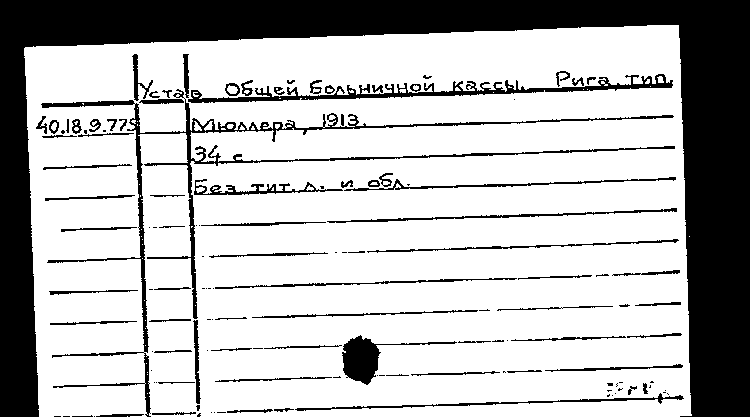 Устав Общей Больничной кассы. Рига, тип.
40.18.9.775 Мюллера, 1913.
34 с
Без тит. л. и обл.